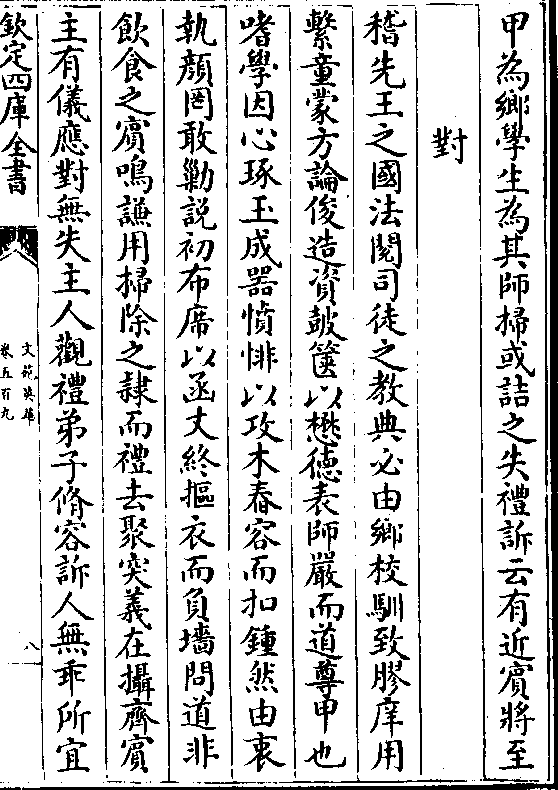 甲為鄉學生為其師掃或詰之失禮訴云有近賓將至
對
稽先王之國法閱司徒之教典必由鄉校馴致膠庠用
繫童蒙方論俊造資皷篋以懋德表師嚴而道尊甲也
嗜學因心琢玉成器憤悱以攻木舂容而扣鍾然由衷
執顔罔敢勦說初布席以函丈終摳衣而負墻問道非
飲食之賓鳴謙用掃除之隷而禮去聚突義在攝齊賓
主有儀應對無失主人觀禮弟子脩容訴人無乖所宜
欽定四庫全書
文苑英華
卷五百九
八